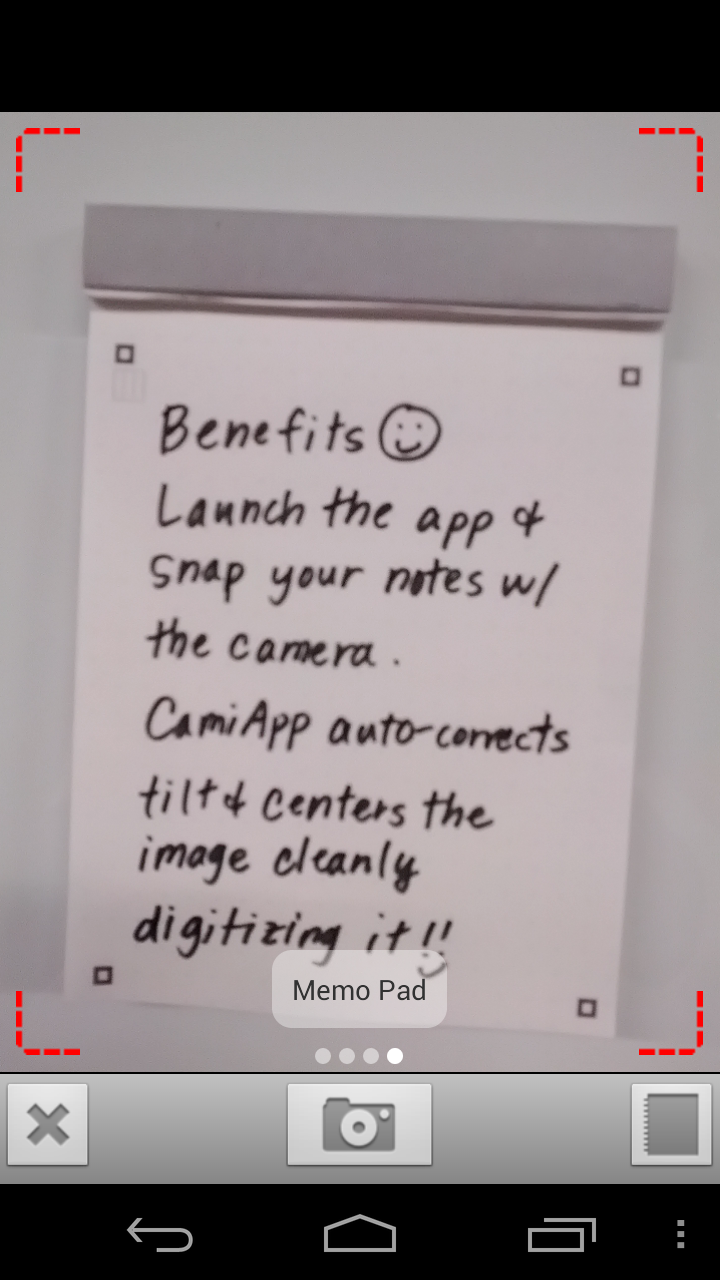 Benefits ☺
Launch the app &
snap your notes w/
the camera.
CamiApp auto-corrects
tilt & centers the
image cleanly
digitizing it!!
Memo Pad